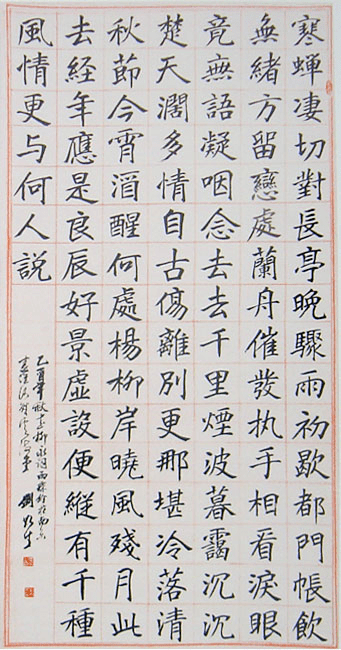 寒蝉凄切對長亭晚驟雨初歇都門帳飲
無緒方留戀處蘭舟催發执手相看淚眼
竟無語凝咽念去去千里煙波暮靄沉沉
楚天濶多情自古傷離別更那堪冷落清
秋節今宵酒醒何處楊柳岸曉風殘月此
去経年應是良辰好景虛設便縱有千種
風情更与何人説
乙酉年秋書柳永詞雨霖鈴於南京
劉